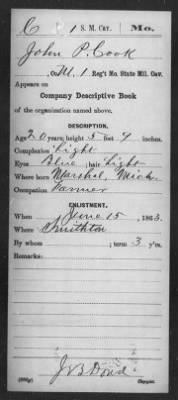 C 1 S. M. Cav. Mo.
John P. Cook
, Co. M, 1 Reg't Mo. State Mil. Cav.
Appears on
Company Descriptive Book
of the organization named above.
DESCRIPTION.
Age 20 years; height 5 feet 9 inches.
Complexion Light
Eyes Blue; hair Light
Where born Marshal, Mich.
Occupation Farmer
ENLISTMENT.
When June 15, 1863.
Where Smithton
By whom ; term 3 y'rs.
Remarks:
Copyist.